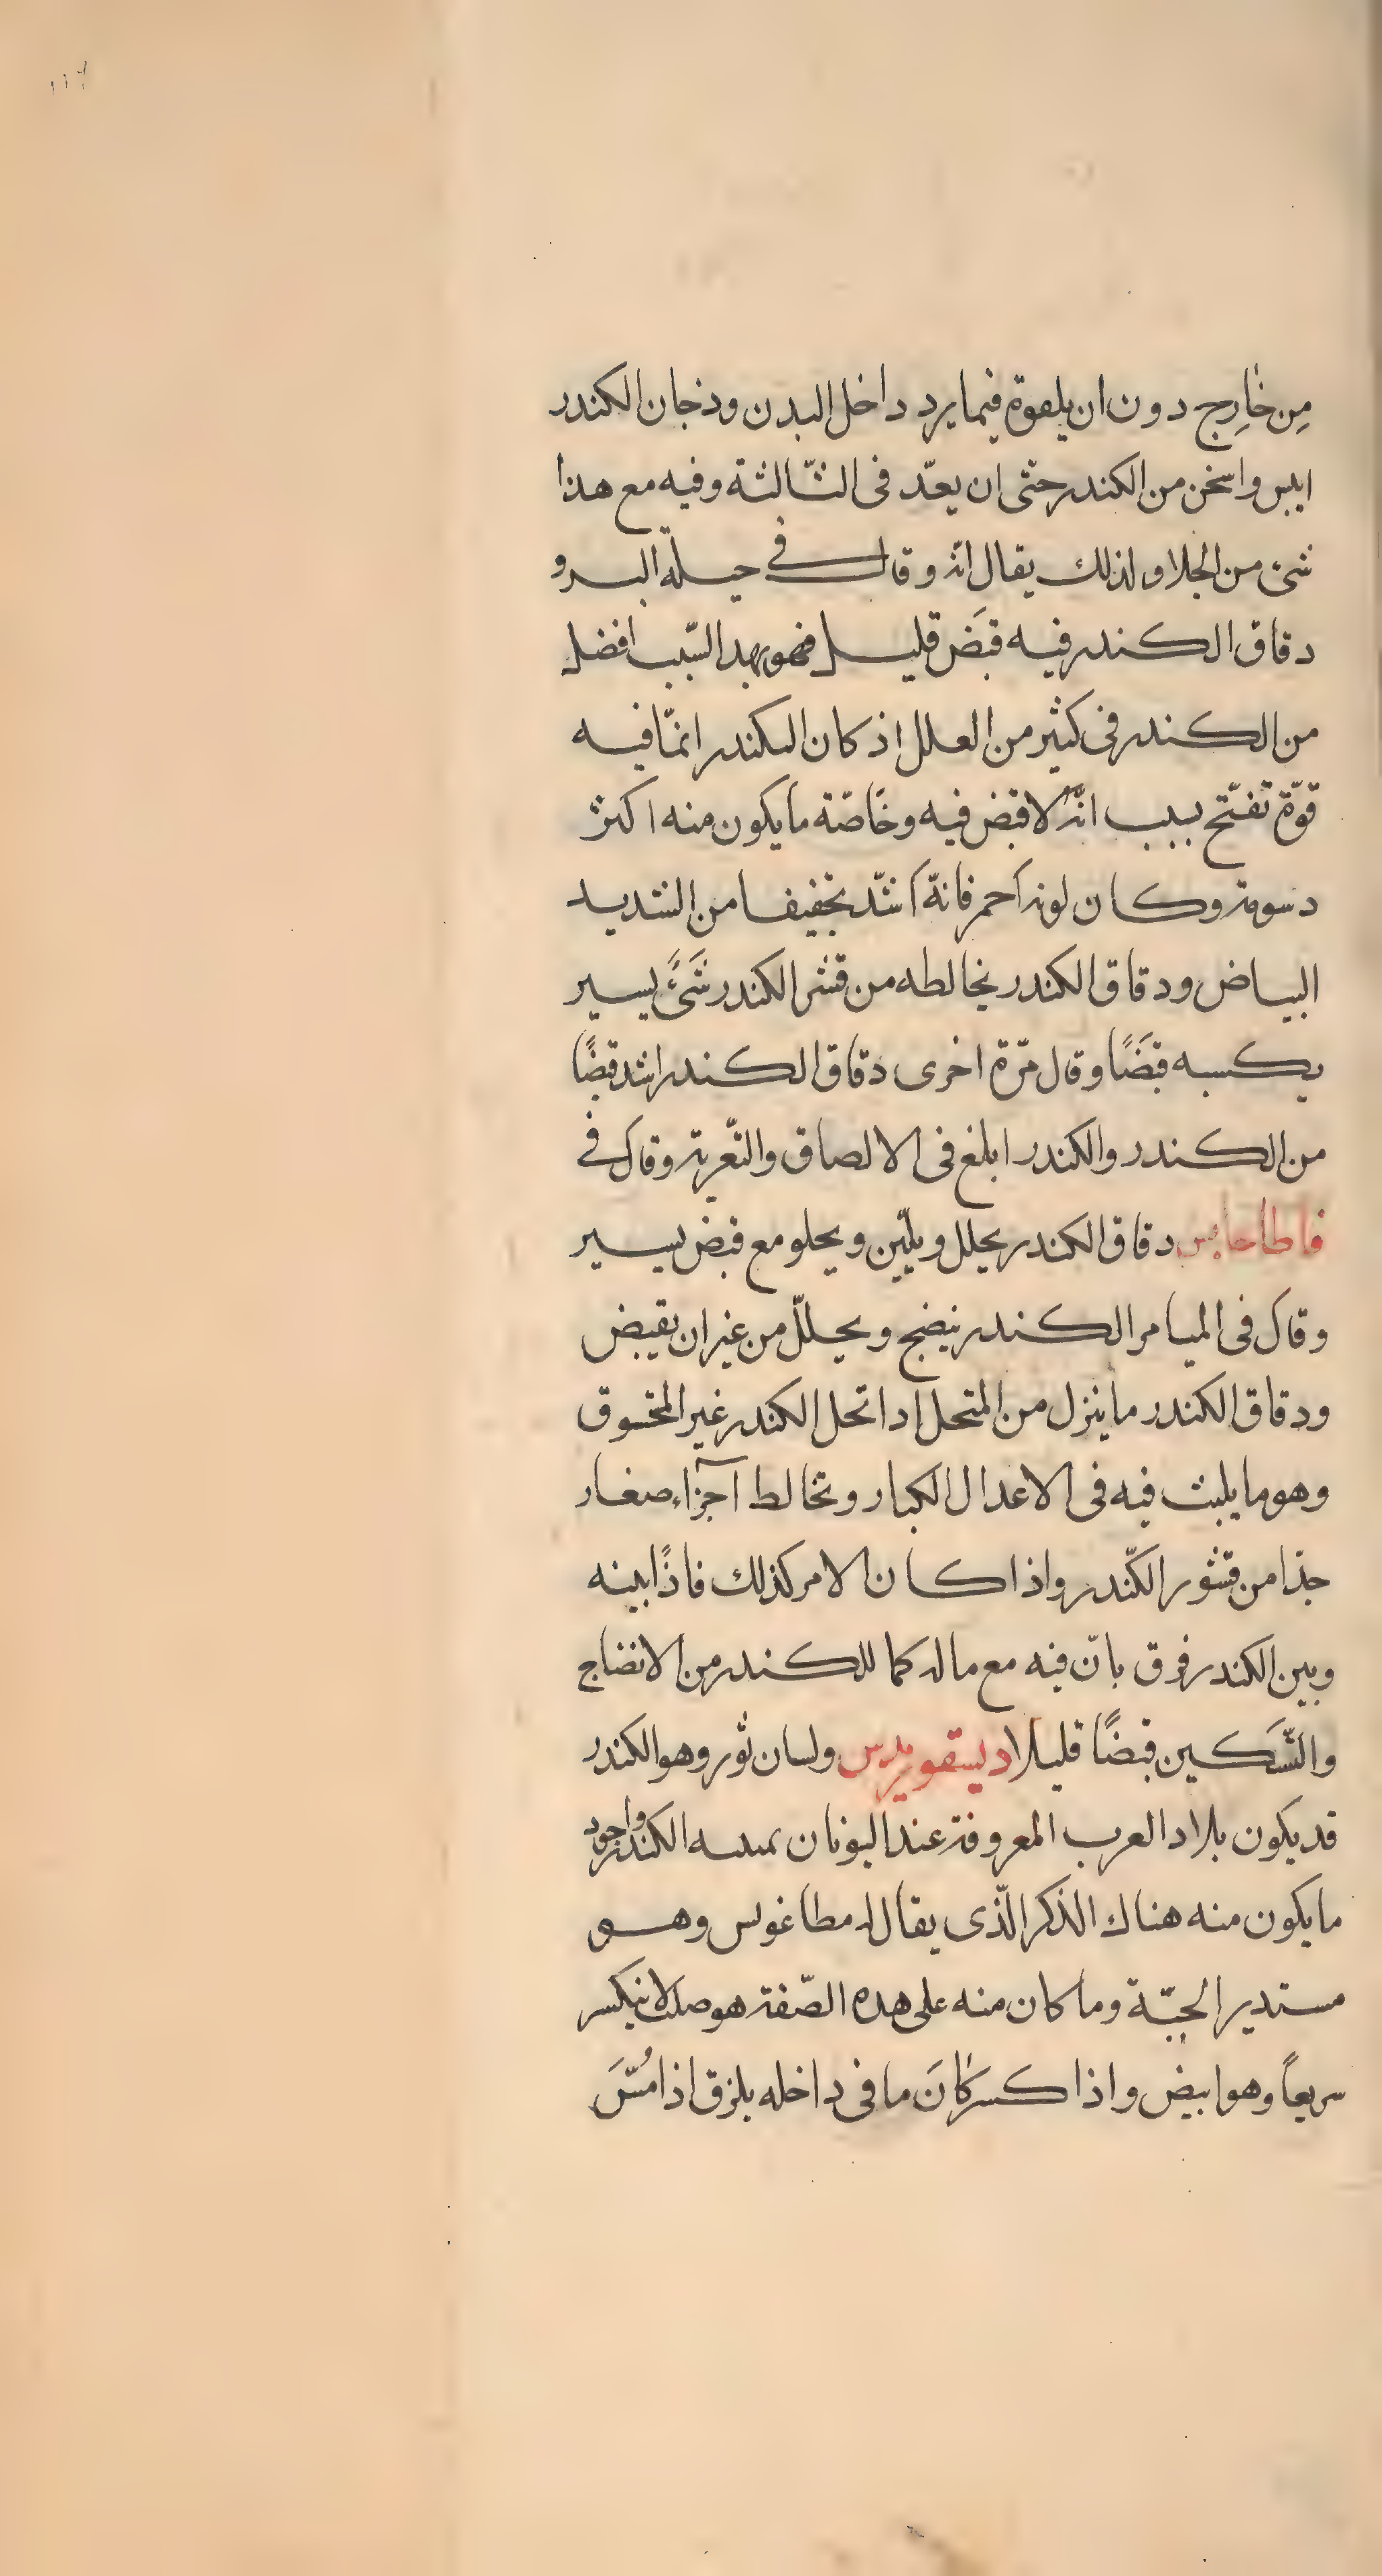 ١١٧
مِن خٰارِج دون ان يلقوة فيما يرد داخل البدن ودخان الكندر
ايبس واسخن من الكندر حتى ان يعدّ فى الثّالثة وفيه مع هذا
شئ من الجلا ولذلك يقال انه وقال فى حيلة البرو
دقاق الكندر فيه قبَض قليل فهو بهذا السّبب افضل
من الكندر فى كثير من العلل اذ كان الكندر انمّا فيه
قوّة تفتّح بسبب انّه لا قبض فيه وخَاصّة ما يكون منه اكثر
دسومة وكان لونه احمر فانّه اشدّ تجفيفا من الشديد
البياض ودقاق الكندر يخالطه من قشر الكندر شَئً يسير
يكسبه قبَضًا وقال مّرة اخرى دقاق الكندر اشد قبضًا
من الكندر والكندر ابلغ فى الالصاق والتّغرية وقال فى
قاطاجانس دقاق الكندر يحلل ويليّن ويجلو مع قبض يسير
وقال فى الميامر الكندر ينضج ويحللّ من غير ان يقبض
ودقاق الكندر ما ينزل من المنخل اذا نخل الكندر غير المخسوق
وهو ما يلبث فيه فى الاعدال الكبار وتخالط آجزاء صغار
جدّا من قشور الكّندر واذا كان الامر كذلك فاذًا بينه
وبين الكندر فرق بانّ فيه مع ماله كما للكندر من الانضاج
والتّسَكين قبضًا قليلا ديسقوريدس ولسان ثٰور وهو الكندر
قد يكون بلاد العرب المعروفة عند اليونان بمنبته الكندر واجود
ما يكون منه هناك الذّكر الّذى يقال له مطاغوس وهو
مستدير الحبّة وما كان منه على هده الصّفة هو صلب لا ينكسر
سريعاً وهو ابيض واذا كسر كٰانَ ما فى داخله يلزق اذا مُسّ